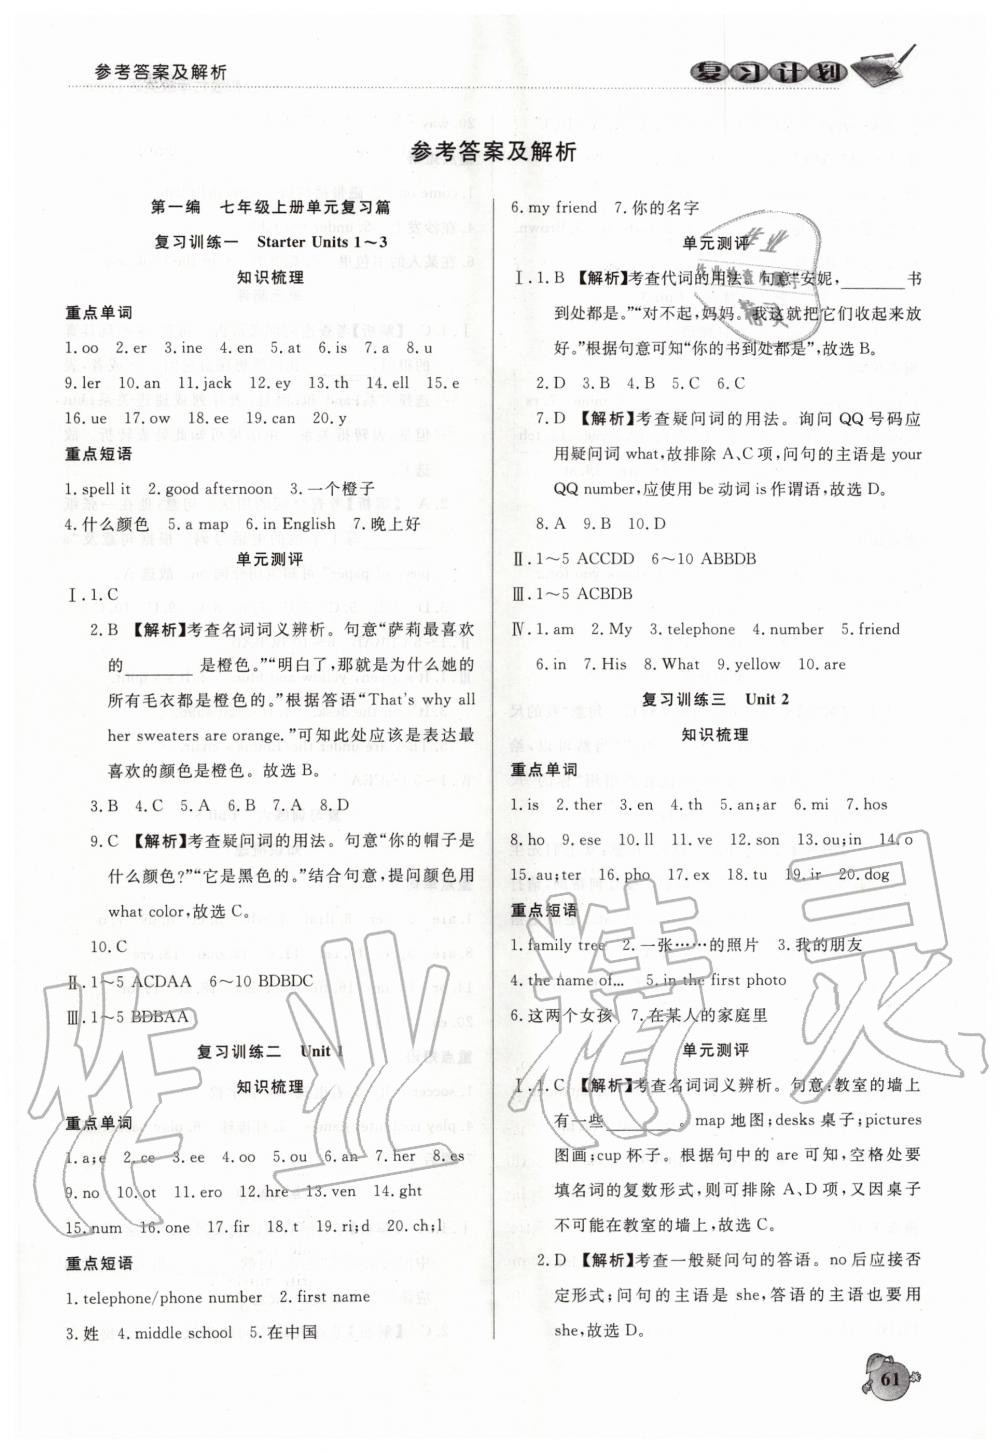 参考答案及解析
复习计划
参考答案及解析
第一编　七年级上册单元复习篇
复习训练一　Starter Units 1～3
知识梳理
重点单词
1. oo　2. er　3. ine　4. en　5. at　6. is　7. a　8. u
9. ler　10. an　11. jack　12. ey　13. th　14. ell　15. e
16. ue　17. ow　18. ee　19. can　20. y
重点短语
1. spell it　2. good afternoon　3. 一个橙子
4. 什么颜色　5. a map　6. in English　7. 晚上好
单元测评
Ⅰ. 1. C
2. B　【解析】考查名词词义辨析。句意“萨莉最喜欢
的________是橙色。”“明白了,那就是为什么她的
所有毛衣都是橙色的。”根据答语“That's why all
her sweaters are orange.”可知此处应该是表达最
喜欢的颜色是橙色。故选 B。
3. B　4. C　5. A　6. B　7. A　8. D
9. C　【解析】考查疑问词的用法。句意“你的帽子是
什么颜色?”“它是黑色的。”结合句意,提问颜色用
what color,故选 C。
10. C
Ⅱ. 1～5 ACDAA　6～10 BDBDC
Ⅲ. 1～5 BDBAA
复习训练二　Unit 1
知识梳理
重点单词
1. a;e　2. ce　3. ee　4. oo　5. ou　6. an　7. her　8. es
9. no　10. ot　11. ero　12. hre　13. ven　14. ght
15. num　16. one　17. fir　18. t　19. ri;d　20. ch;l
重点短语
1. telephone/phone number　2. first name
3. 姓　4. middle school　5. 在中国
6. my friend　7. 你的名字
单元测评
Ⅰ. 1. B　【解析】考查代词的用法。句意“安妮,________书
到处都是。”“对不起,妈妈。我这就把它们收起来放
好。”根据句意可知“你的书到处都是”,故选 B。
2. D　3. B　4. B　5. C　6. C
7. D　【解析】考查疑问词的用法。询问 QQ 号码应
用疑问词 what,故排除 A、C 项,问句的主语是 your
QQ number,应使用 be 动词 is 作谓语,故选 D。
8. A　9. B　10. D
Ⅱ. 1～5 ACCDD　6～10 ABBDB
Ⅲ. 1～5 ACBDB
Ⅳ. 1. am　2. My　3. telephone　4. number　5. friend
6. in　7. His　8. What　9. yellow　10. are
复习训练三　Unit 2
知识梳理
重点单词
1. is　2. ther　3. en　4. th　5. an;ar　6. mi　7. hos
8. ho　9. ese　10. ll　11. ve　12. son　13. ou;in　14. o
15. au;ter　16. pho　17. ex　18. tu　19. ir　20. dog
重点短语
1. family tree　2. 一张……的照片　3. 我的朋友
4. the name of...　5. in the first photo
6. 这两个女孩　7. 在某人的家庭里
单元测评
Ⅰ. 1. C　【解析】考查名词词义辨析。句意:教室的墙上
有一些________。map 地图;desks 桌子;pictures
图画;cup 杯子。根据句中的 are 可知,空格处要
填名词的复数形式,则可排除 A、D 项,又因桌子
不可能在教室的墙上,故选 C。
2. D　【解析】考查一般疑问句的答语。no 后应接否
定形式;问句的主语是 she,答语的主语也要用
she,故选 D。
61
作业精灵